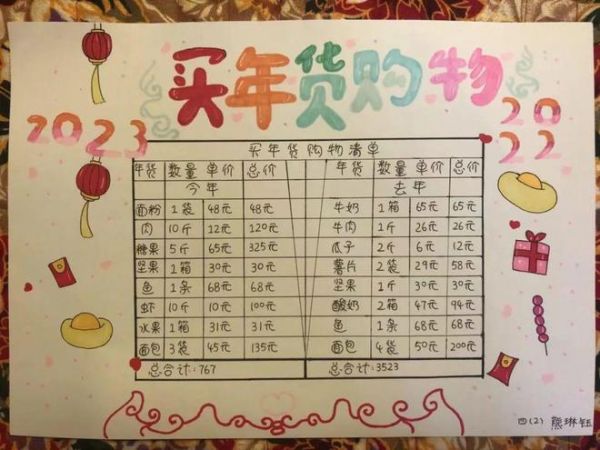 买年货购物
2023
2022
买年货购物清单
年货 数量 单价 总价 年货 数量 单价 总价
今年 去年
面粉 1袋 48元 48元 牛奶 1箱 65元 65元
肉 10斤 12元 120元 牛肉 1斤 26元 26元
糖果 5斤 65元 325元 瓜子 2斤 6元 12元
坚果 1箱 30元 30元 薯片 2袋 29元 58元
鱼 1条 68元 68元 坚果 1斤 30元 30元
虾 10斤 10元 100元 酸奶 2箱 47元 94元
水果 1箱 31元 31元 鱼 1条 68元 68元
面包 3袋 45元 135元 面包 4袋 50元 200元
总合计:767 总合计:3523
四(2) 熊琳钰